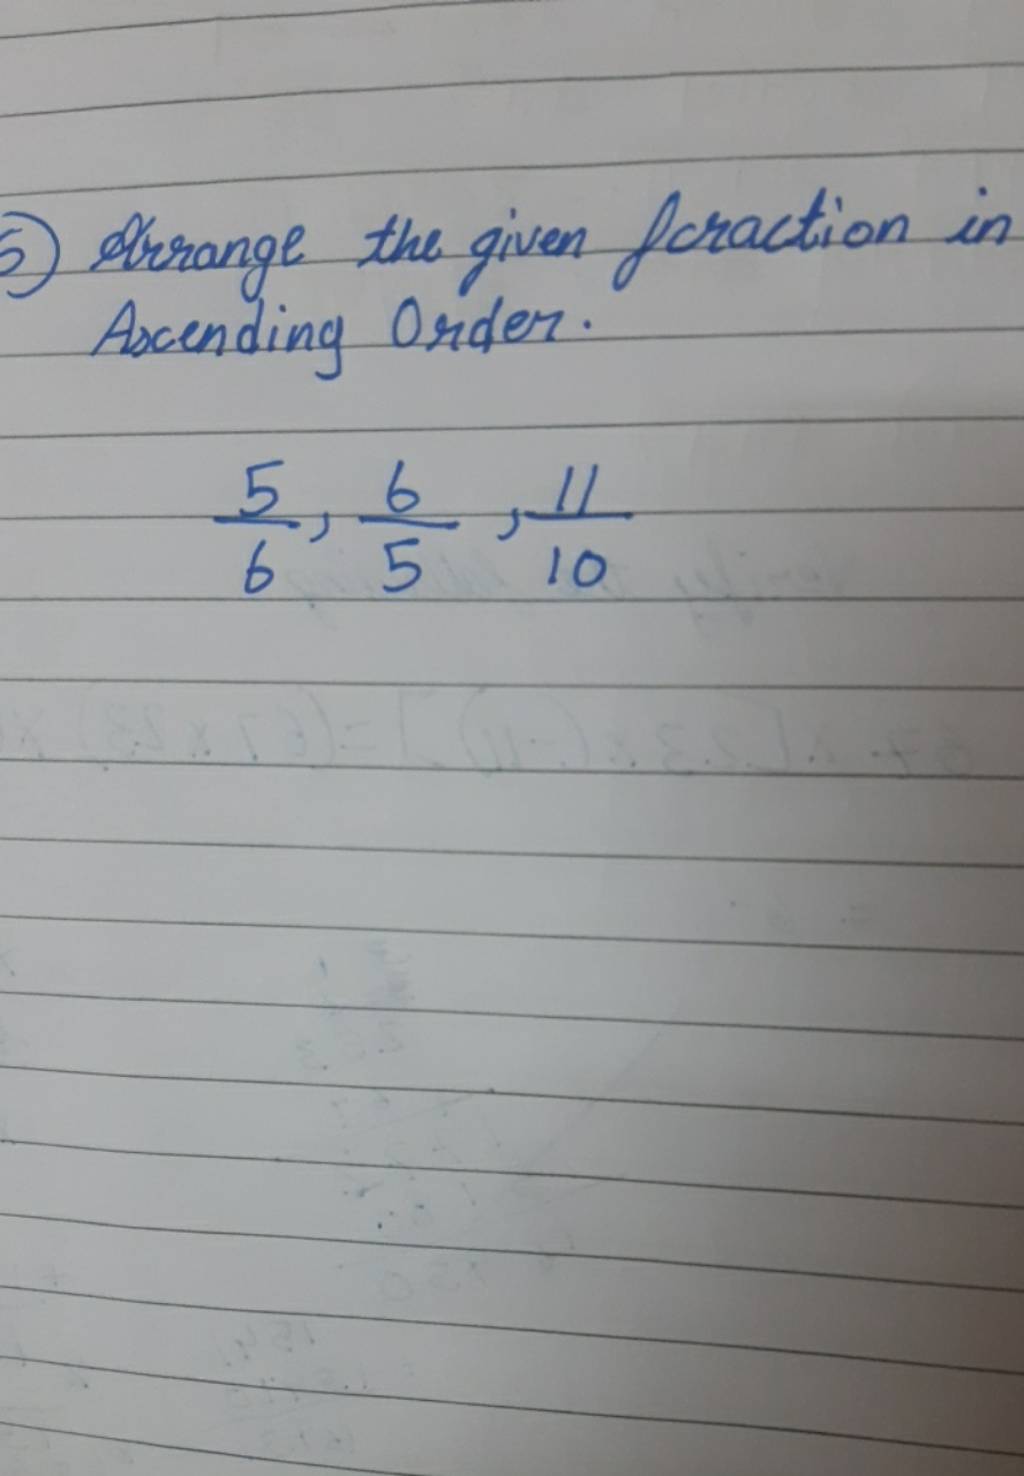 5) Arrange the given fcraction in
Ascending Order.
5/6, 6/5, 11/10